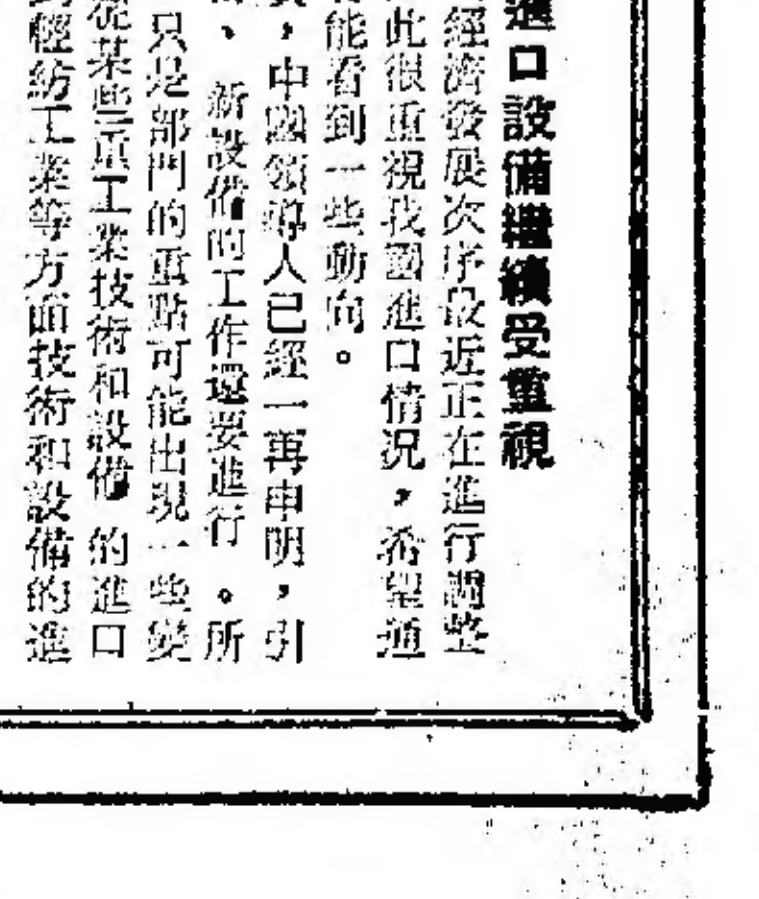 進口設備繼續受重視
經濟發展次序最近正在進行調整
此很重視我國進口情況,希望通
能看到一些動向。
,中國領導人已經一再申明,引
、新設備的工作還要進行。所
只是部門的重點可能出現一些變
從某些重工業技術和設備的進口
到輕紡工業等方面技術和設備的進